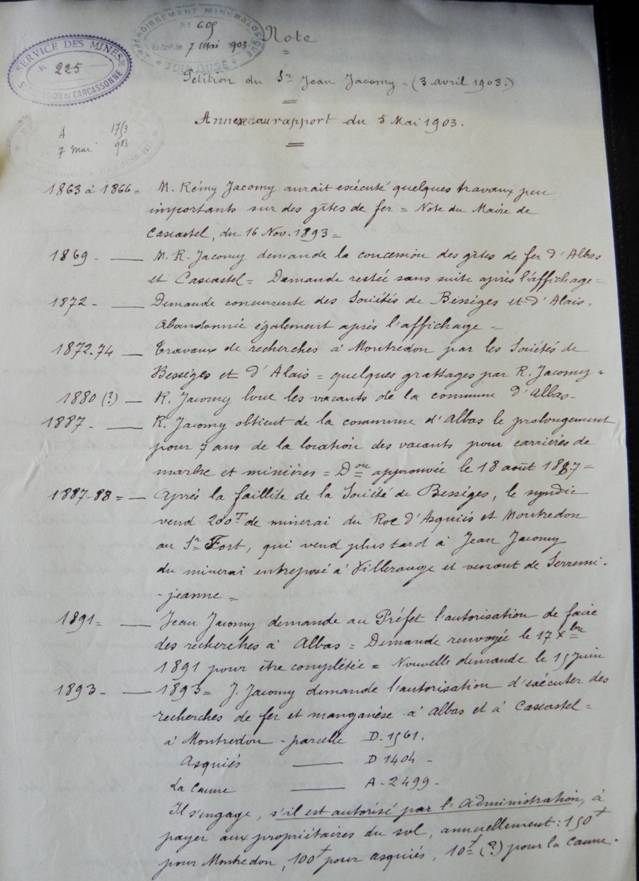 SERVICE DES MINES
N° 225
CARCASSONNE
ARRONDISSEMENT MINÉRALOGIQUE
N° 69
7 Mai 1903
TOULOUSE
Note
Pétition du Sr Jean Jacomy - (3 avril 1903.)
Annexe au rapport du 5 Mai 1903.
A 17/3
7 Mai 903
1863 à 1866 = M. Rémy Jacomy aurait exécuté quelques travaux peu
importants sur des gîtes de fer = Note du Maire de
Cascastel, du 16 Nov. 1893 =
1869 - — M. R. Jacomy demande la concession des gîtes de fer d'Albas
et Cascastel = Demande restée sans suite après l'affichage =
1872 - — Demande concurrente des Sociétés de Bességes et d'Alais.
Abandonnée également après l'affichage -
1872.74 — Travaux de recherches à Montredon par les Sociétés de
Bességes et d'Alais = quelques grattages par R. Jacomy =
1880 (?) — R. Jacomy loue les vacants de la commune d'Albas -
1887 - — R. Jacomy obtient de la commune d'Albas le prolongement
pour 7 ans de la location des vacants pour carrières de
marbre et minières = Don approuvée le 18 août 1887 =
1887-88 = — Après la faillite de la Société de Bességes, le syndic
vend 200T de minerai du Roc d'Asquiés et Montredon
au Sr Fort, qui vend plus tard à Jean Jacomy
du minerai entreposé à Villerouge et venant de Serremi-
-jeanne =
1891 = — Jean Jacomy demande au Préfet l'autorisation de faire
des recherches à Albas = Demande renvoyée le 17 Xbre
1891 pour être complétée = Nouvelle demande le 15 juin
1893 - — 1893 = J. Jacomy demande l'autorisation d'exécuter des
recherches de fer et manganèse à Albas et à Cascastel =
à Montredon - parcelle D. 1561.
Asquiés — D 1404 -
La Caune — A - 2499 -
Il s'engage, s'il est autorisé par l'Administration, à
payer aux propriétaires du sol, annuellement : 150f
pour Montredon, 100f pour asquiés, 10f (?) pour la Caune.